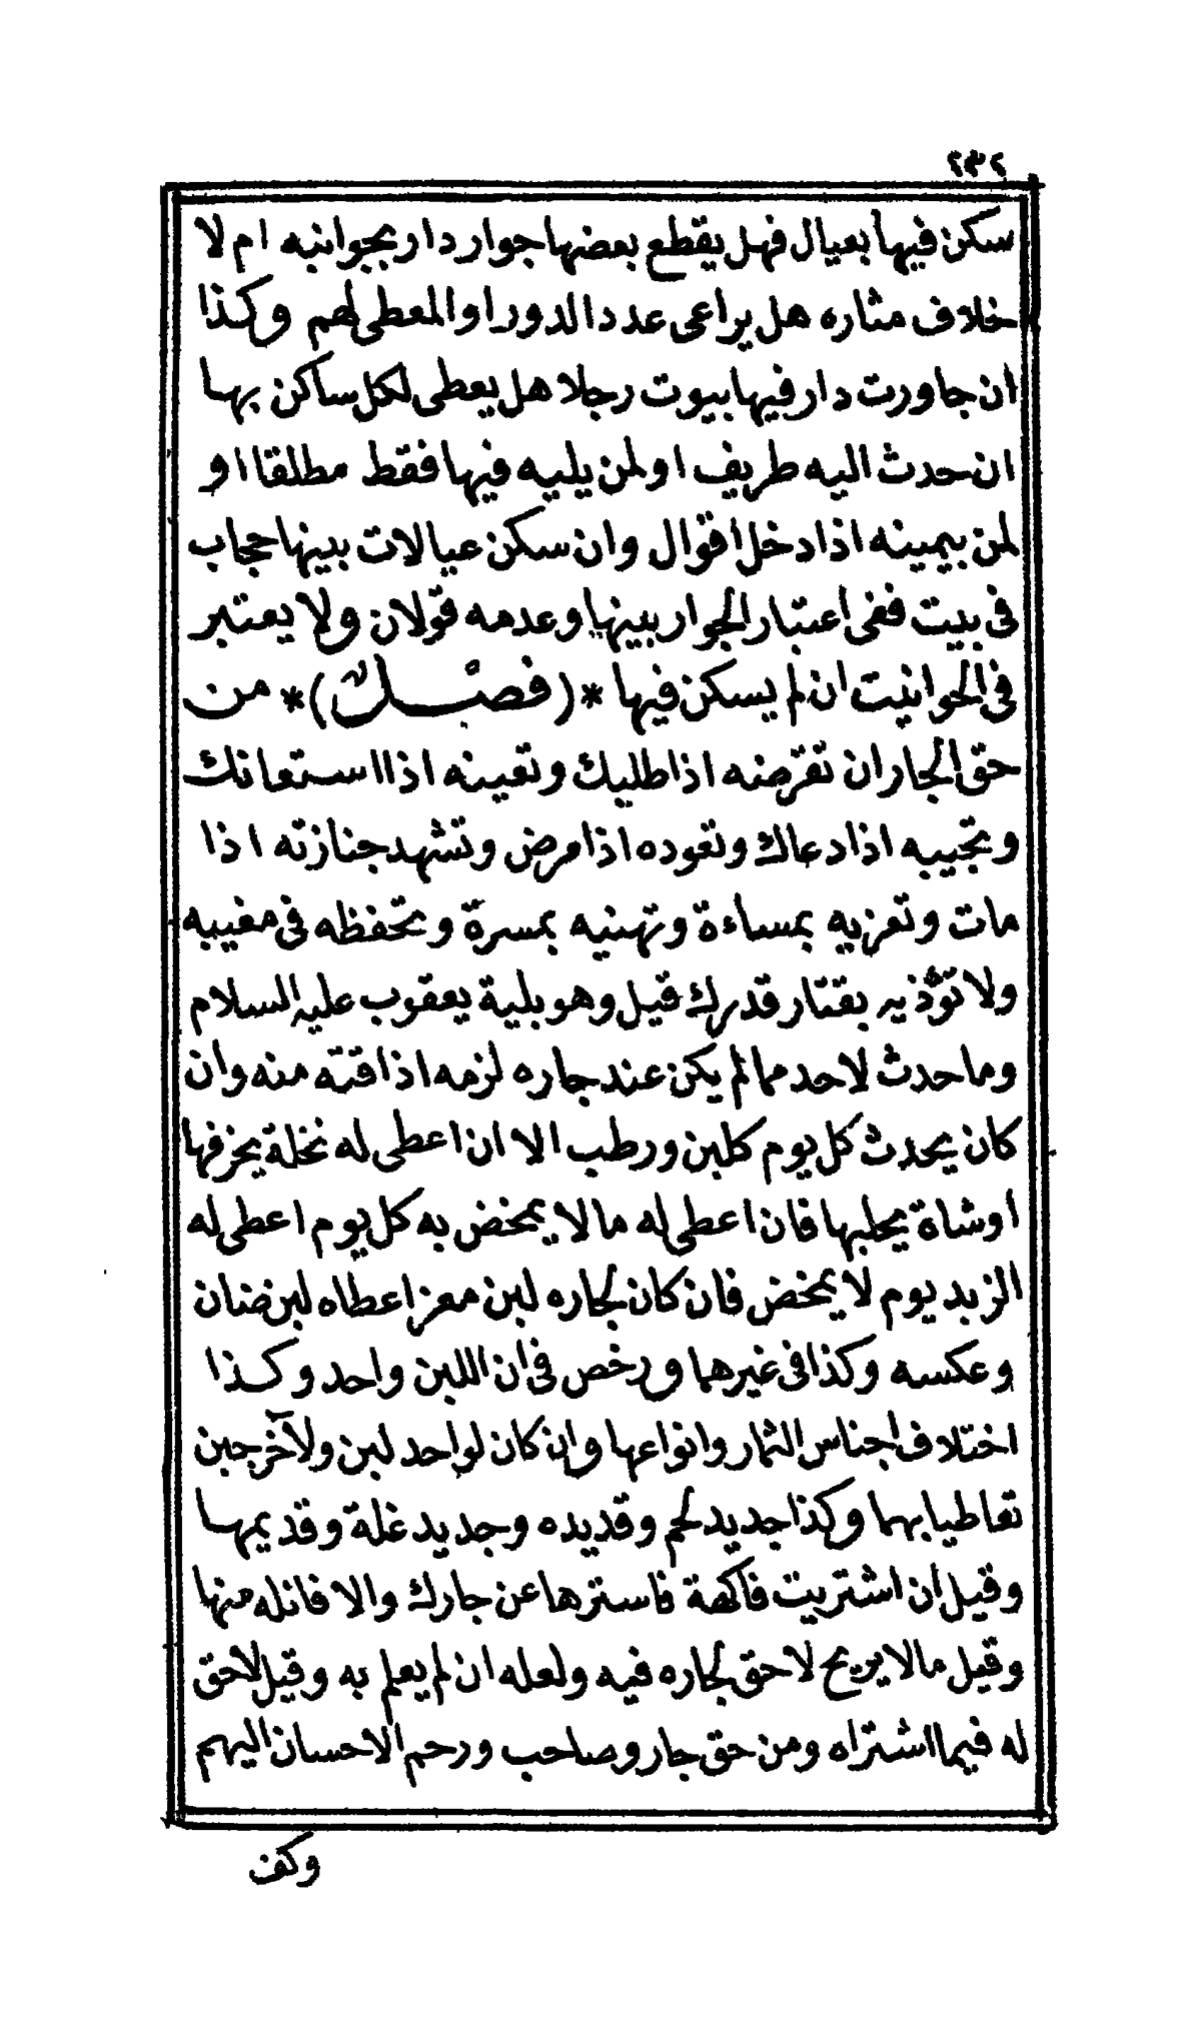 ٢٣٢
سكن فيها بعيال فهل يقطع بعضها جوار دار بجوانبه ام لا
خلاف مثاره هل يراعى عدد الدور او المعطى لهم وكذا
ان جاورت دار فيها بيوت رجلا هل يعطى لكل ساكن بها
ان حدث اليه طريف او لمن يليه فيها فقط مطلقا او
لمن بيمينه اذا دخل اقوال وان سكن عيالات بينها حجاب
فى بيت ففى اعتبار الجوار بينها وعدمه قولان ولا يعتبر
فى الحوانيت ان لم يسكن فيها *(فصل)* من
حق الجار ان تقرضنه اذا طلبك وتعينه اذا استعانك
وتجيبه اذا دعاك وتعوده اذا مرض وتشهد جنازته اذا
مات وتعزيه بمساءة وتهنيه بمسرة وتحفظه فى مغيبه
ولا تؤذيه بقتار قدرك قيل وهو بلية يعقوب عليه السلام
وما حدث لاحد مما لم يكن عند جاره لزمه اذاقته منه وان
كان يحدث كل يوم كلبن ورطب الا ان اعطى له نخلة يخرفها
او شاة يحلبها فان اعطى له ما لا يمخض به كل يوم اعطى له
الزبد يوم لا يمخض فان كان لجاره لبن معز اعطاه لبن ضان
وعكسه وكذا فى غيرهما ورخص فى ان اللبن واحد وكذا
اختلاف اجناس الثمار وانواعها وان كان لواحد لبن ولآخر جبن
تعاطيا بهما وكذا جديد لحم وقديده وجديد غلة وقديمها
وقيل ان اشتريت فاكهة فاسترها عن جارك والا فانله منها
وقيل ما لا يريح لا حق لجاره فيه ولعله ان لم يعلم به وقيل لا حق
له فيما اشتراه ومن حق جار وصاحب ورحم الاحسان اليهم
وكف